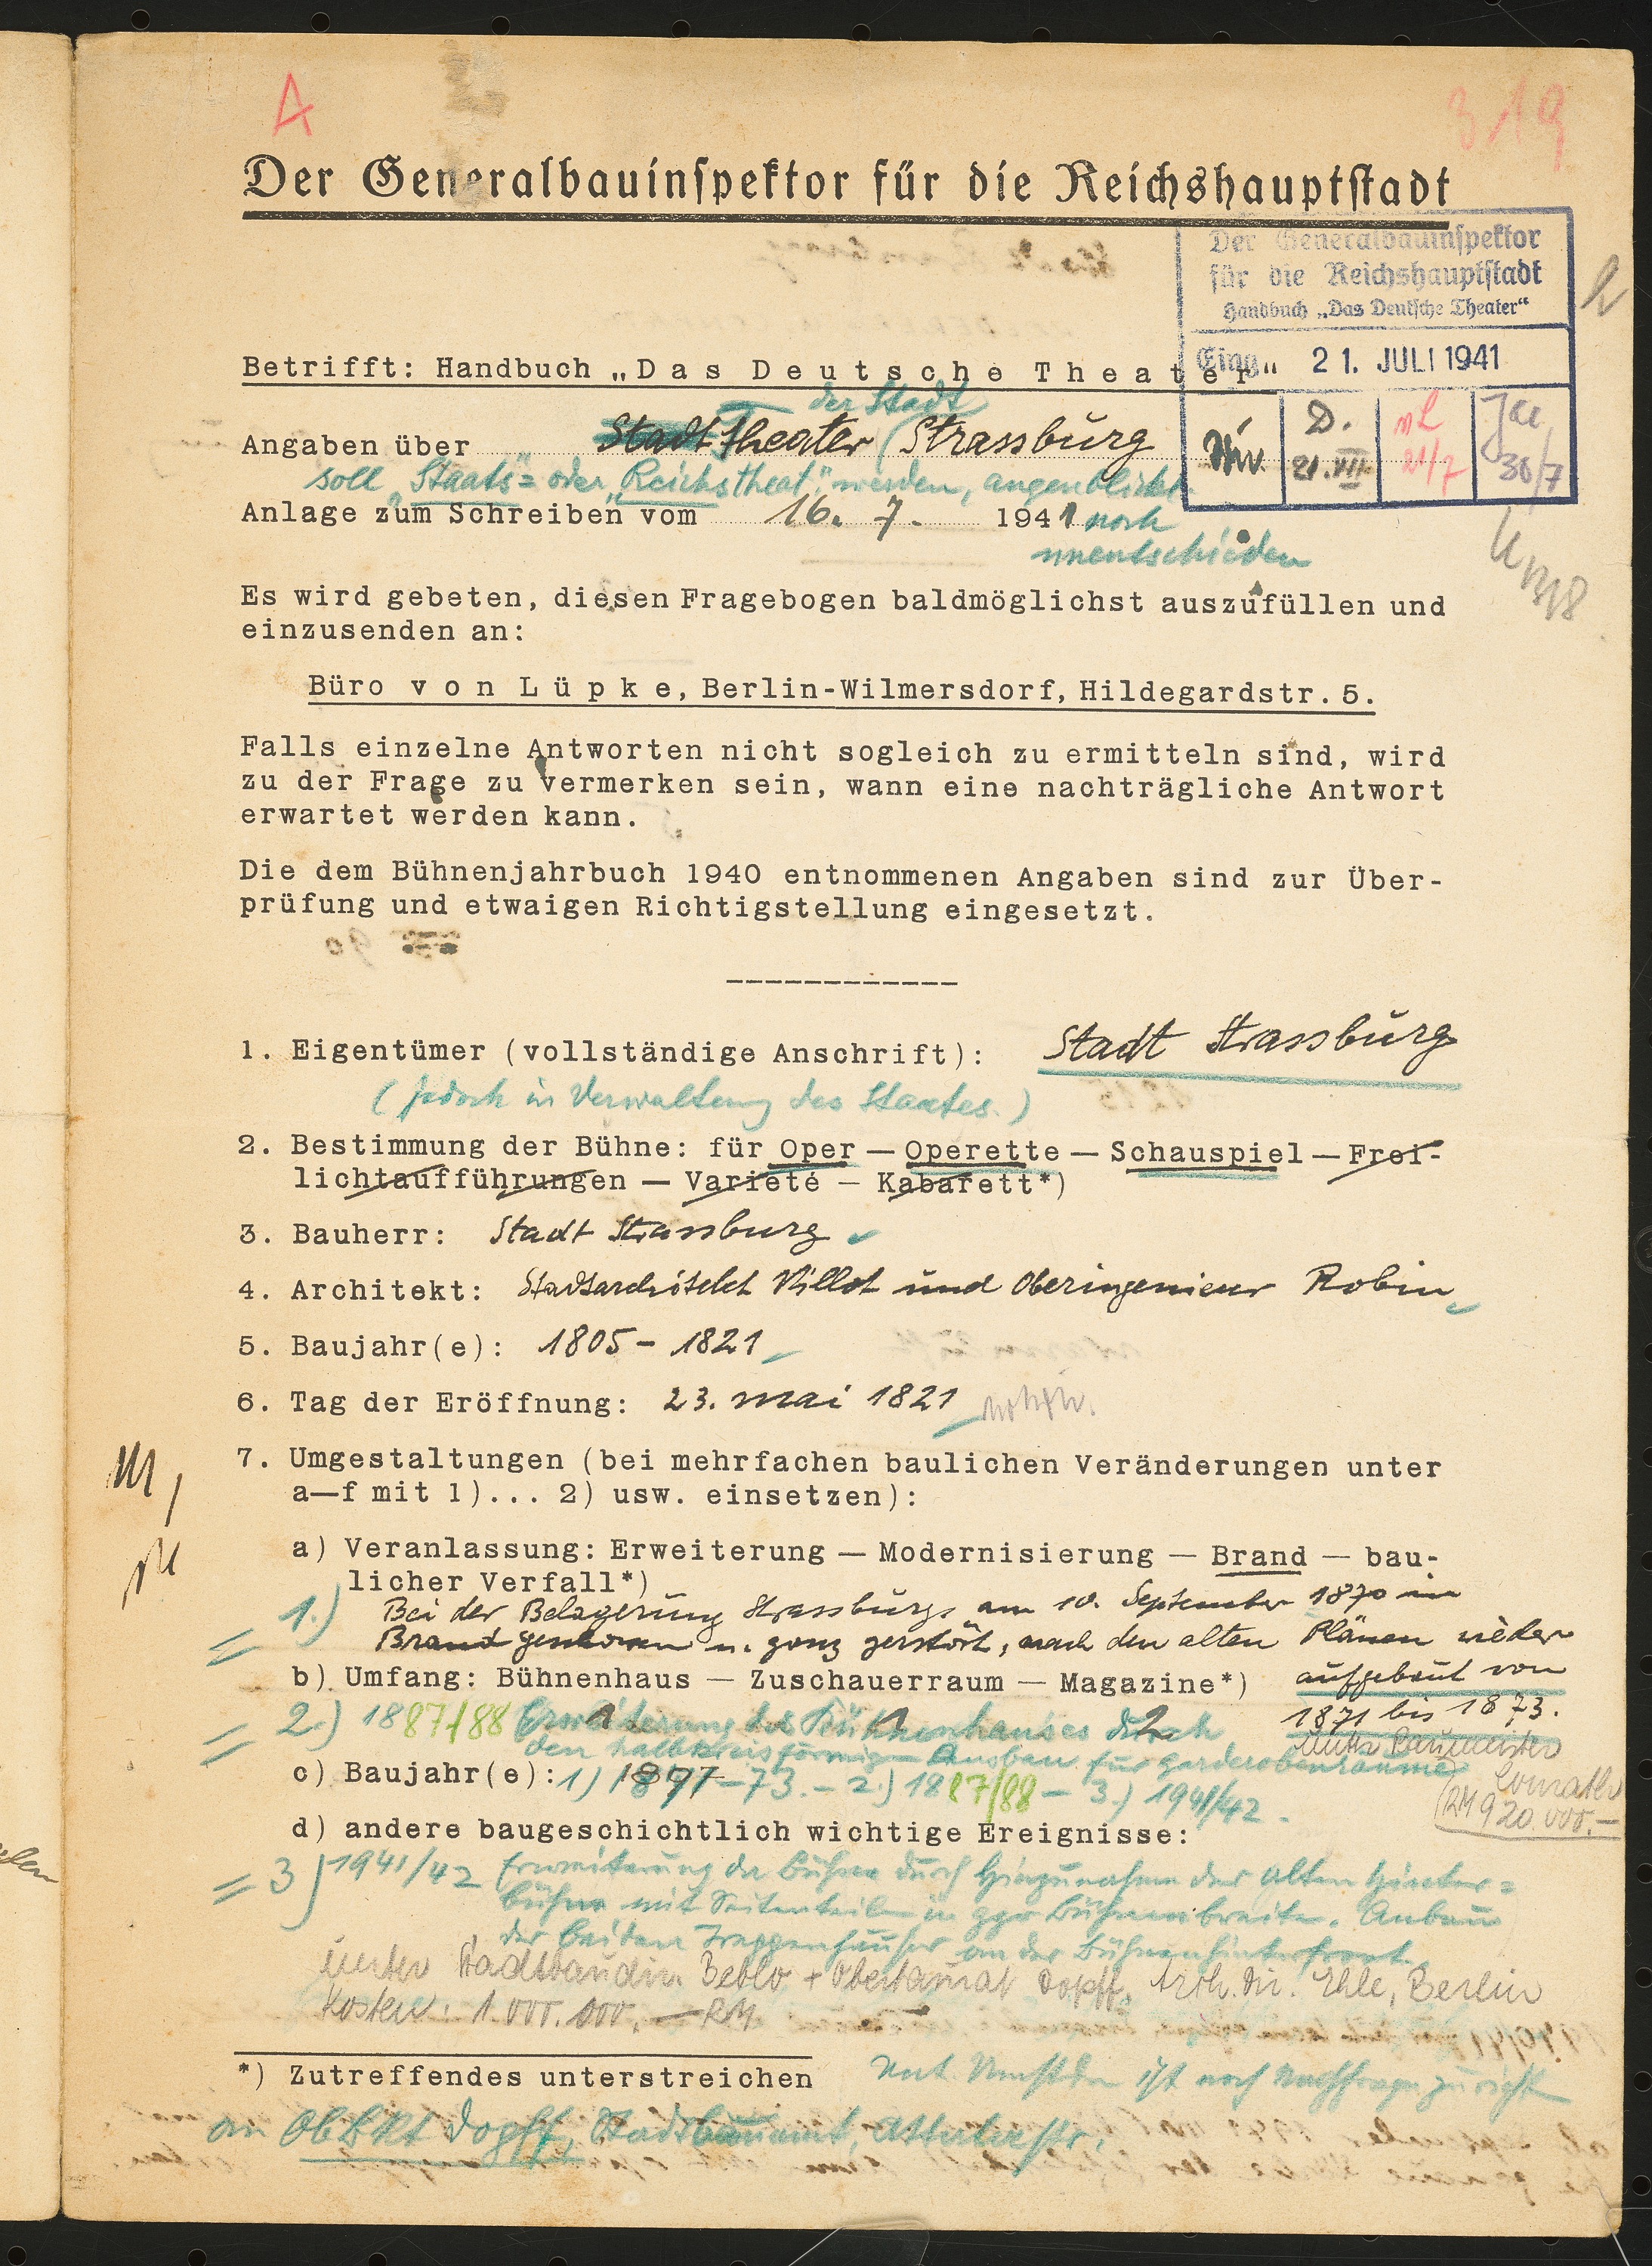 A
319
Der Generalbauinspektor für die Reichshauptstadt
Der Generalbauinspektor
für die Reichshauptstadt
Handbuch „Das Deutsche Theater“
Eing. 21. JULI 1941
D.
21. VII
21/7
30/7
Betrifft: Handbuch „Das Deutsche Theater“
der Stadt
Angaben über Stadt Theater Strassburg
soll „Staats“= oder „Reichstheat“ werden, augenblickl.
Anlage zum Schreiben vom 16. 7. 1941 noch
unentschieden
Es wird gebeten, diesen Fragebogen baldmöglichst auszufüllen und
einzusenden an:
Büro von Lüpke, Berlin-Wilmersdorf, Hildegardstr. 5.
Falls einzelne Antworten nicht sogleich zu ermitteln sind, wird
zu der Frage zu vermerken sein, wann eine nachträgliche Antwort
erwartet werden kann.
Die dem Bühnenjahrbuch 1940 entnommenen Angaben sind zur Über-
prüfung und etwaigen Richtigstellung eingesetzt.
1. Eigentümer (vollständige Anschrift): Stadt Strassburg
(jedoch in Verwaltung des Staates.)
2. Bestimmung der Bühne: für Oper — Operette — Schauspiel — Frei-
lichtaufführungen — Varieté — Kabarett*)
3. Bauherr: Stadt Strassburg
4. Architekt: Stadtarchitekt Villot und Oberingenieur Robin
5. Baujahr(e): 1805 - 1821
6. Tag der Eröffnung: 23. Mai 1821
7. Umgestaltungen (bei mehrfachen baulichen Veränderungen unter
a—f mit 1)... 2) usw. einsetzen):
a) Veranlassung: Erweiterung — Modernisierung — Brand — bau-
licher Verfall*)
1.) Bei der Belagerung Strassburgs am 10. September 1870 in
Brand geschossen u. ganz zerstört, nach den alten Plänen wieder
b) Umfang: Bühnenhaus — Zuschauerraum — Magazine*) aufgebaut von
1871 bis 1873.
2.) 1887/88 Erweiterung des Bühnenhauses durch
den halbkreisförmigen Ausbau für Garderobenräume
unter Baumeister
Conrath
c) Baujahr(e): 1) 1871-73. - 2.) 1887/88 - 3.) 1941/42.
(RM 920.000.—
d) andere baugeschichtlich wichtige Ereignisse:
3) 1941/42 Erweiterung der Bühne durch Hinzunahme der alten Hinter=
bühne mit Seitenteilen in ggr Bühnenbreite. Anbau
der beiden Treppenhäuser an der Bühnenhinterfront.
unter Stadtbaudir. Beblo + Oberbaurat Dopff, Arch. Dir. Ehle, Berlin
Kosten: 1.000.000.— RM
*) Zutreffendes unterstreichen
ist noch Nachfrage zu richten
an ObBRt Dopff, Stadtbauamt,